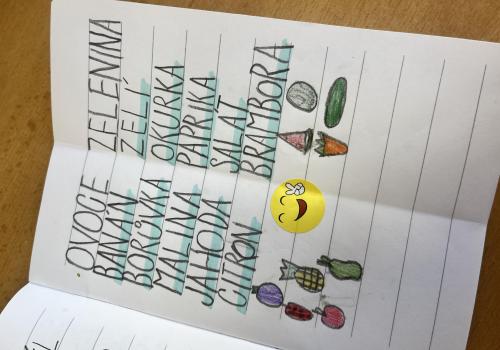 OVOCE
BANÁN
BORŮVKA
MALINA
JAHODA
CITRON
ZELENINA
ZELÍ
OKURKA
PAPRIKA
SALÁT
BRAMBORA